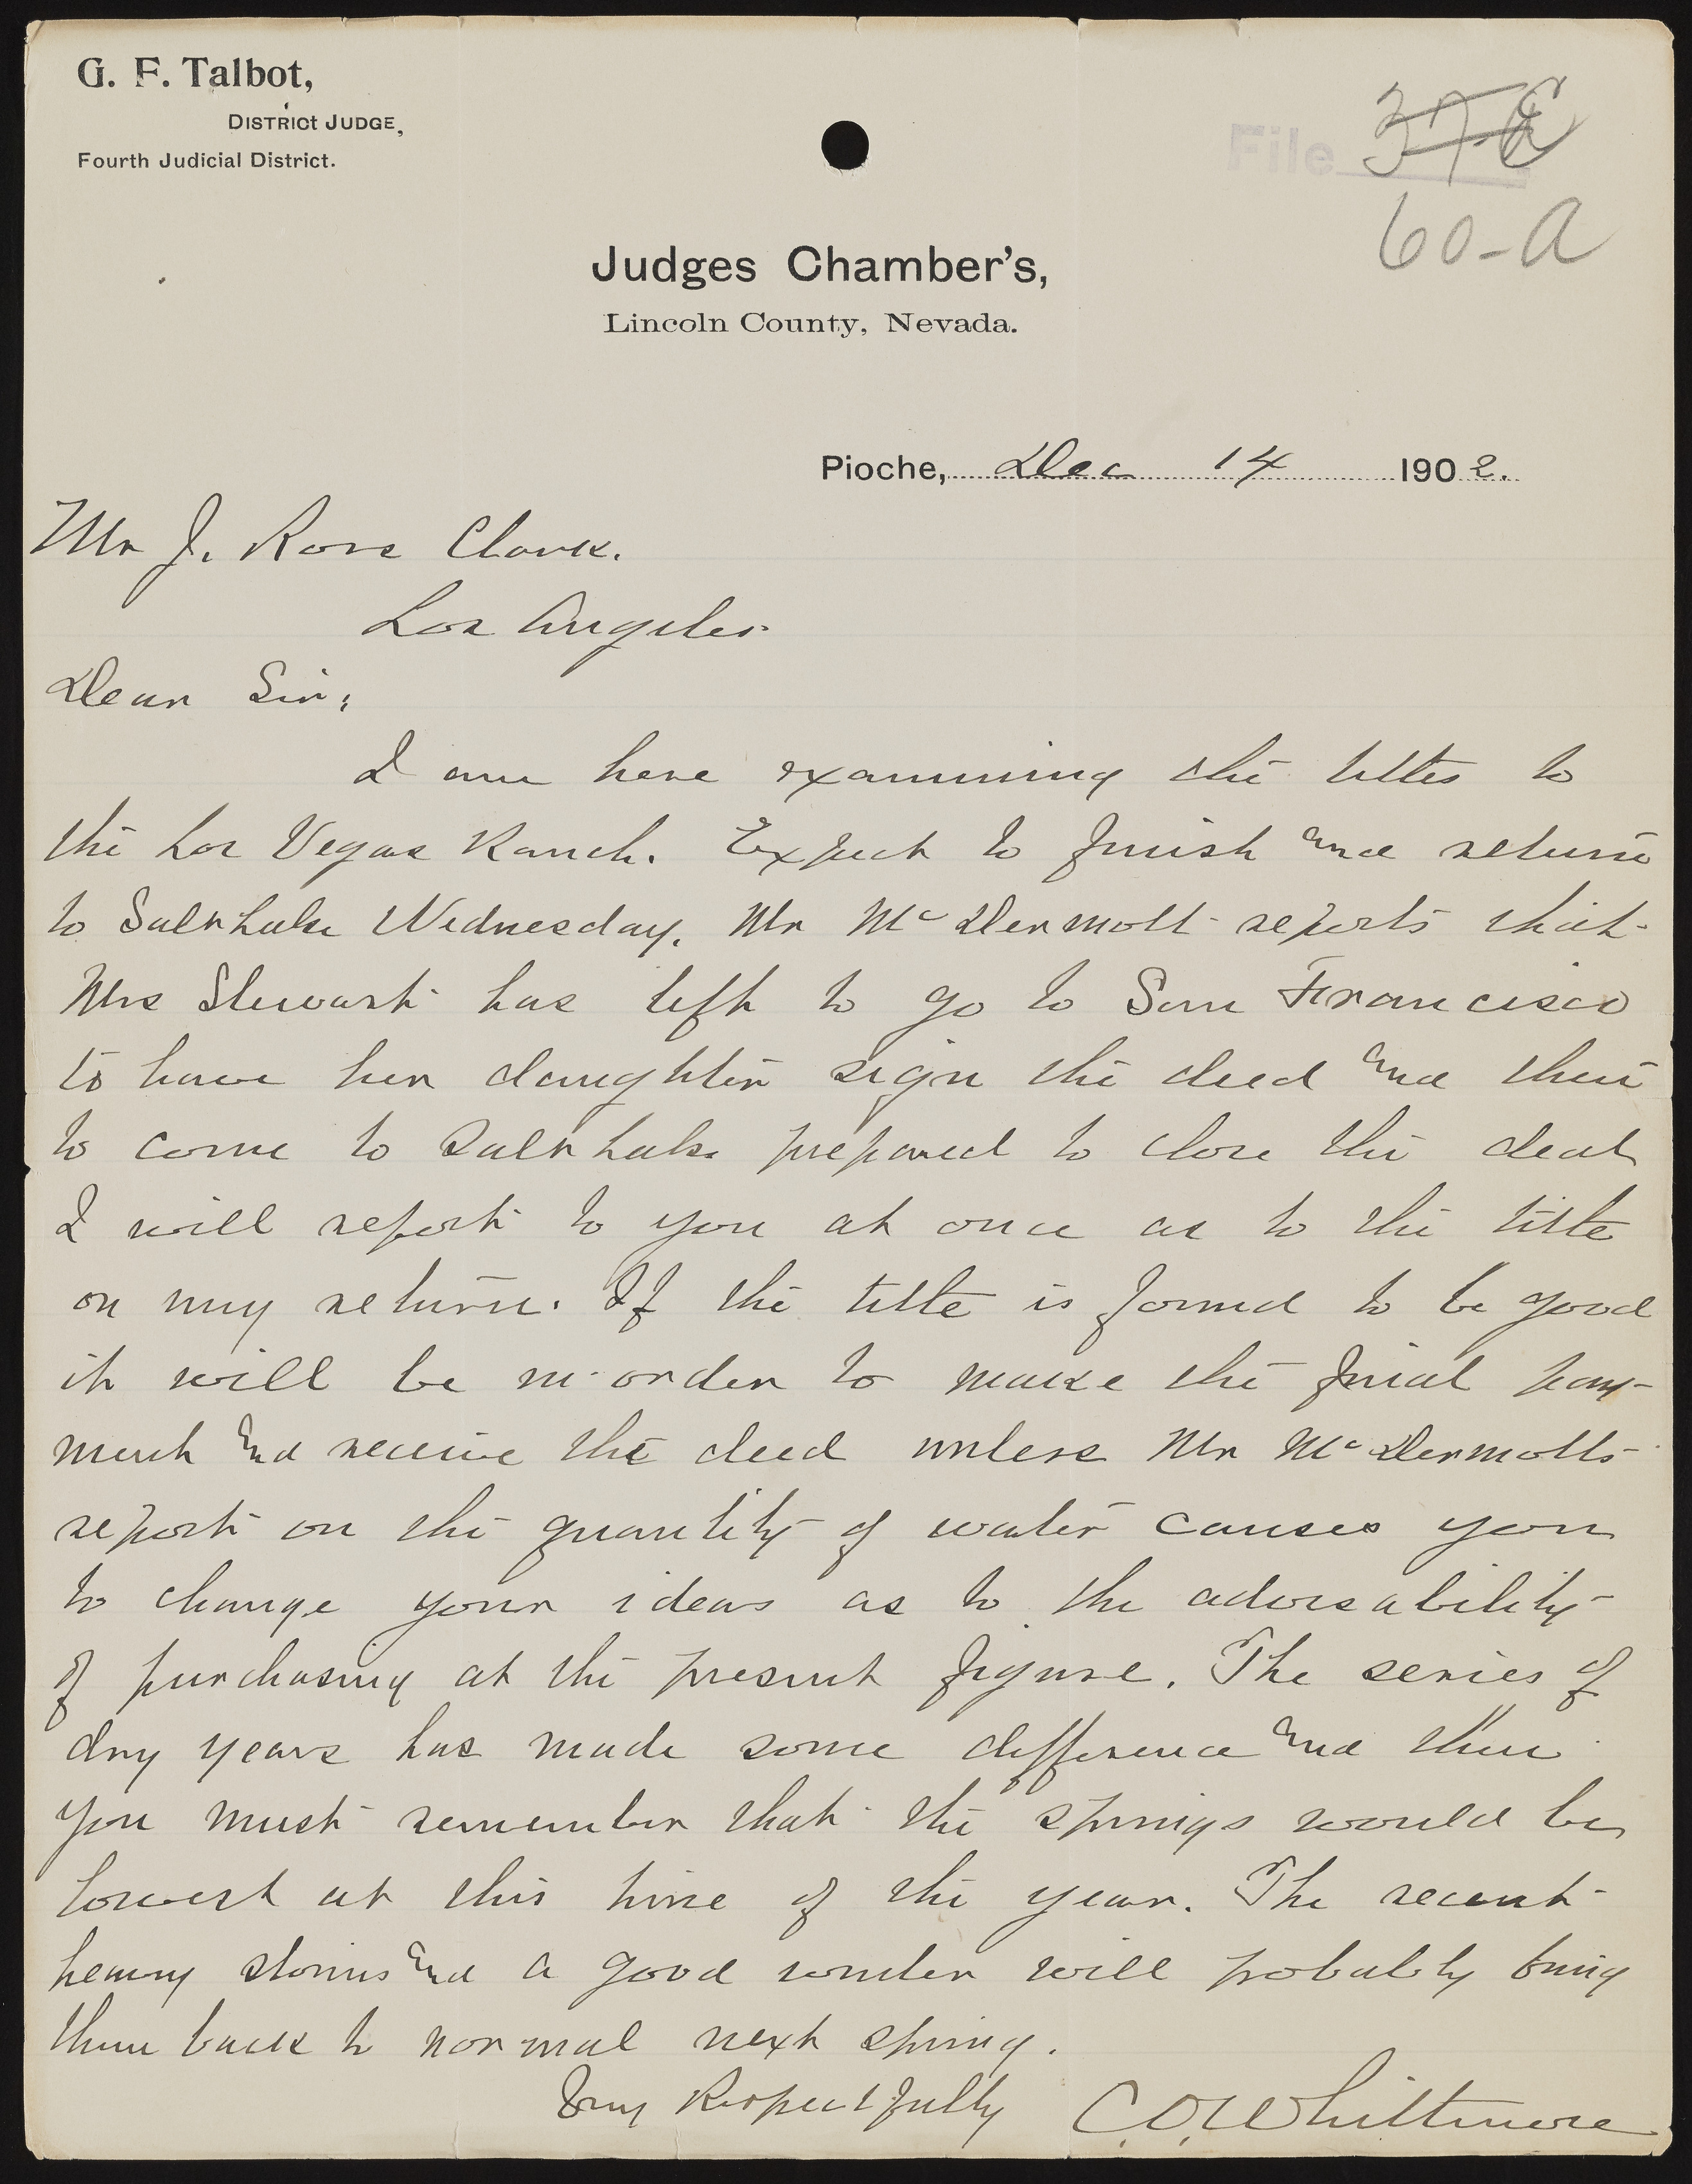 G. F. Talbot,
District Judge,
Fourth Judicial District.
File 37-E
60-A
Judges Chamber's,
Lincoln County, Nevada.
Pioche, Dec 14 1902.
Mr J. Ross Clark.
Los Angeles
Dear Sir;
I am here examining the titles to
the Los Vegas Ranch. Expect to finish and return
to Salt Lake Wednesday. Mr McDermott reports that
Mrs Stewart has left to go to San Francisco
to have her daughter sign the deed and then
to come to Salt Lake prepared to close the deal
I will report to you at once as to the title
on my return. If the title is found to be good
it will be in order to make the final pay-
ment and receive the deed unless Mr McDermotts
report on the quantity of water causes you
to change your ideas as to the advisability
of purchasing at the present figure. The series of
dry years has made some difference and then
you must remember that the springs would be
lowest at this time of the year. The recent
heavy storms and a good winter will probably bring
them back to normal next spring.
Very Respectfully C.O. Whittmore